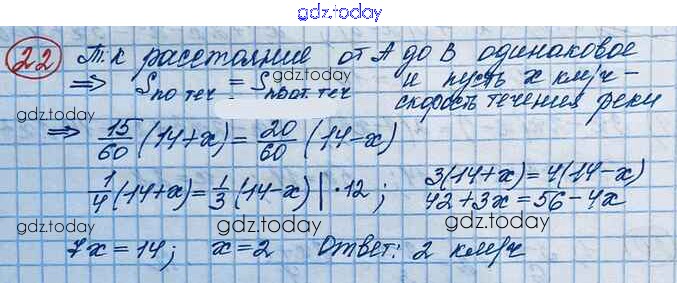 gdz.today
22 Т.к расстояние от А до В одинаковое
⇒ S по теч = S пр. теч и пусть x км/ч -
gdz.today
скорость течения реки
gdz.today
⇒ 15/60 (14+x) = 20/60 (14-x)
1/4 (14+x) = 1/3 (14-x) | ·12 ; 3(14+x) = 4(14-x)
42+3x = 56-4x
gdz.today gdz.today
7x = 14; x = 2 Ответ: 2 км/ч